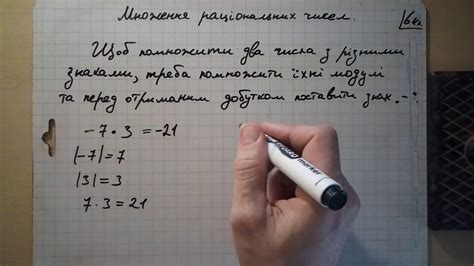 Множення раціональних чисел.
6 кл
Щоб помножити два числа з різними
знаками, треба помножити їхні модулі
та перед отриманим добутком поставити знак „-“.
-7 · 3 = -21
|-7| = 7
|3| = 3
7 · 3 = 21
marker